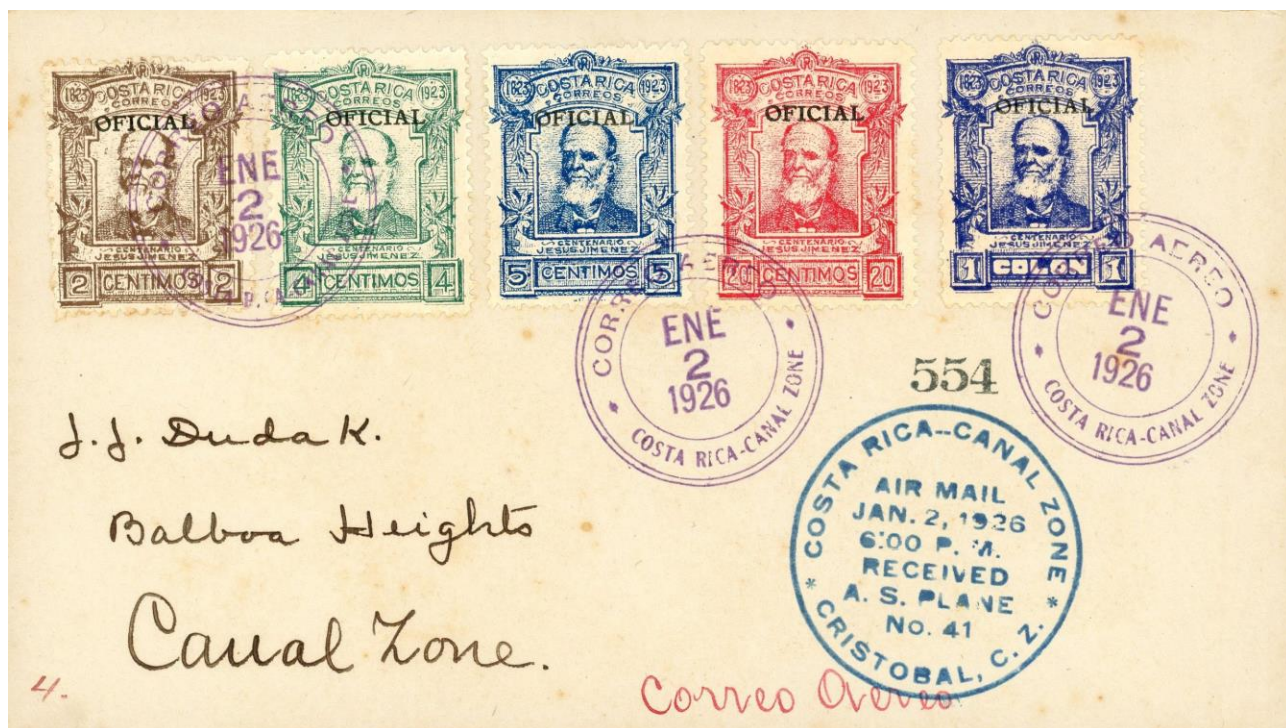 1823 COSTA RICA 1923
CORREOS
OFICIAL
CENTENARIO
JESUS JIMENEZ
2 CENTIMOS 2
1823 COSTA RICA 1923
CORREOS
OFICIAL
CENTENARIO
JESUS JIMENEZ
4 CENTIMOS 4
1823 COSTA RICA 1923
CORREOS
OFICIAL
CENTENARIO
JESUS JIMENEZ
5 CENTIMOS 5
1823 COSTA RICA 1923
CORREOS
OFICIAL
CENTENARIO
JESUS JIMENEZ
20 CENTIMOS 20
1823 COSTA RICA 1923
CORREOS
OFICIAL
CENTENARIO
JESUS JIMENEZ
1 COLON 1
CORREO AEREO
ENE
2
1926
CORREO AEREO
ENE
2
1926
COSTA RICA-CANAL ZONE
CORREO AEREO
ENE
2
1926
COSTA RICA-CANAL ZONE
554
COSTA RICA--CANAL ZONE
AIR MAIL
JAN. 2, 1926
6:00 P. M.
RECEIVED
A. S. PLANE
No. 41
* CRISTOBAL, C. Z. *
J. J. Dudak.
Balboa Heights
Canal Zone.
4.
Correo Aereo